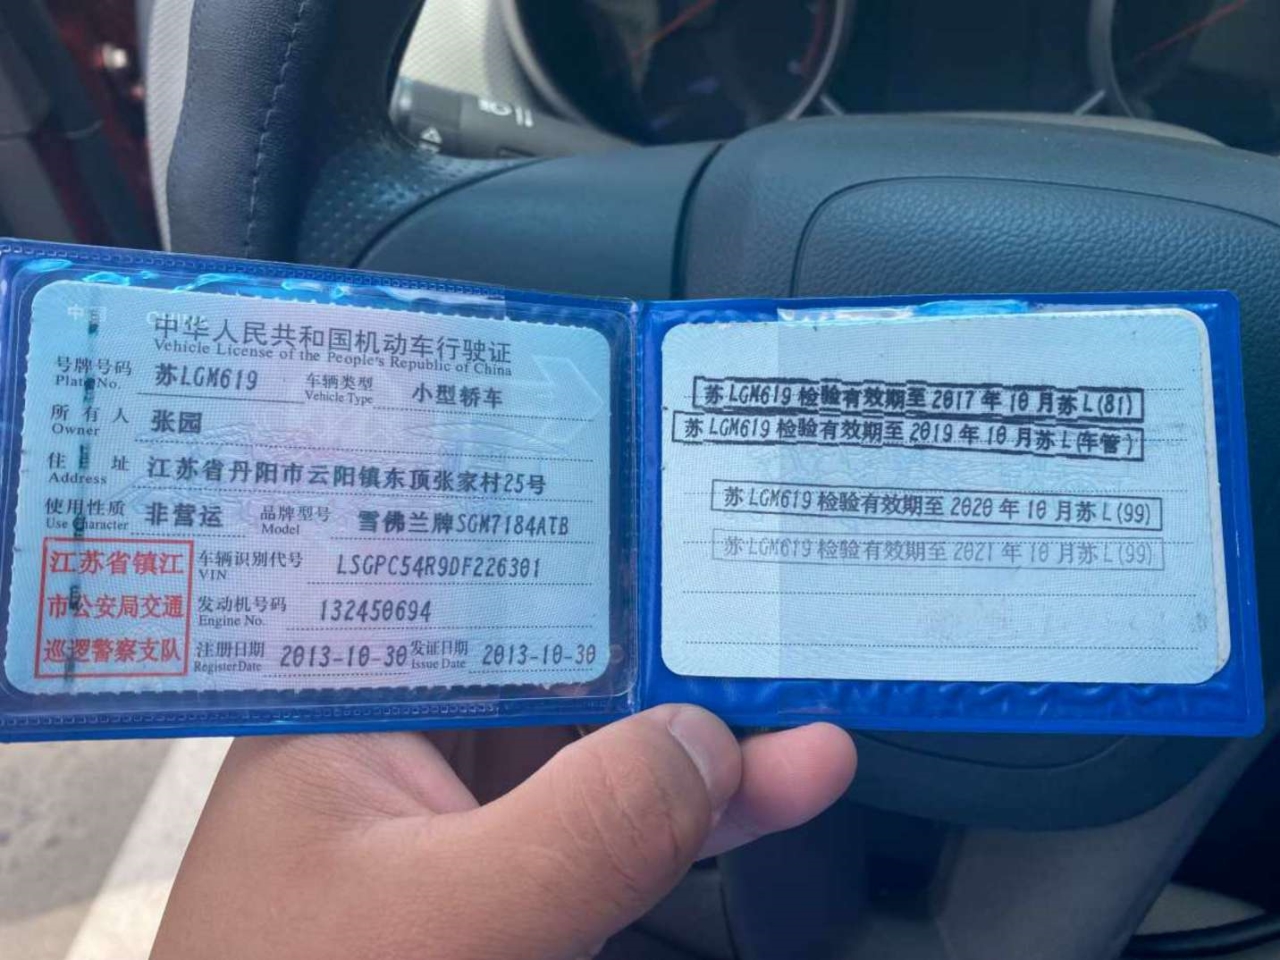 中国 CHINA
中华人民共和国机动车行驶证
Vehicle License of the People's Republic of China
号牌号码 苏LGM619 车辆类型 小型轿车
Plate No. Vehicle Type
所有人 张园
Owner
住址 江苏省丹阳市云阳镇东顶张家村25号
Address
使用性质 非营运 品牌型号 雪佛兰牌SGM7184ATB
Use Character Model
江苏省镇江
市公安局交通
巡逻警察支队
车辆识别代号 LSGPC54R9DF226301
VIN
发动机号码 132450694
Engine No.
注册日期 2013-10-30 发证日期 2013-10-30
Register Date Issue Date
苏LGM619 检验有效期至 2017 年 10 月苏 L(81)
苏 LGM619 检验有效期至 2019 年 10 月苏 L(车管)
苏 LGM619 检验有效期至 2020 年 10 月苏 L(99)
苏 LGM619 检验有效期至 2021 年 10 月苏 L(99)